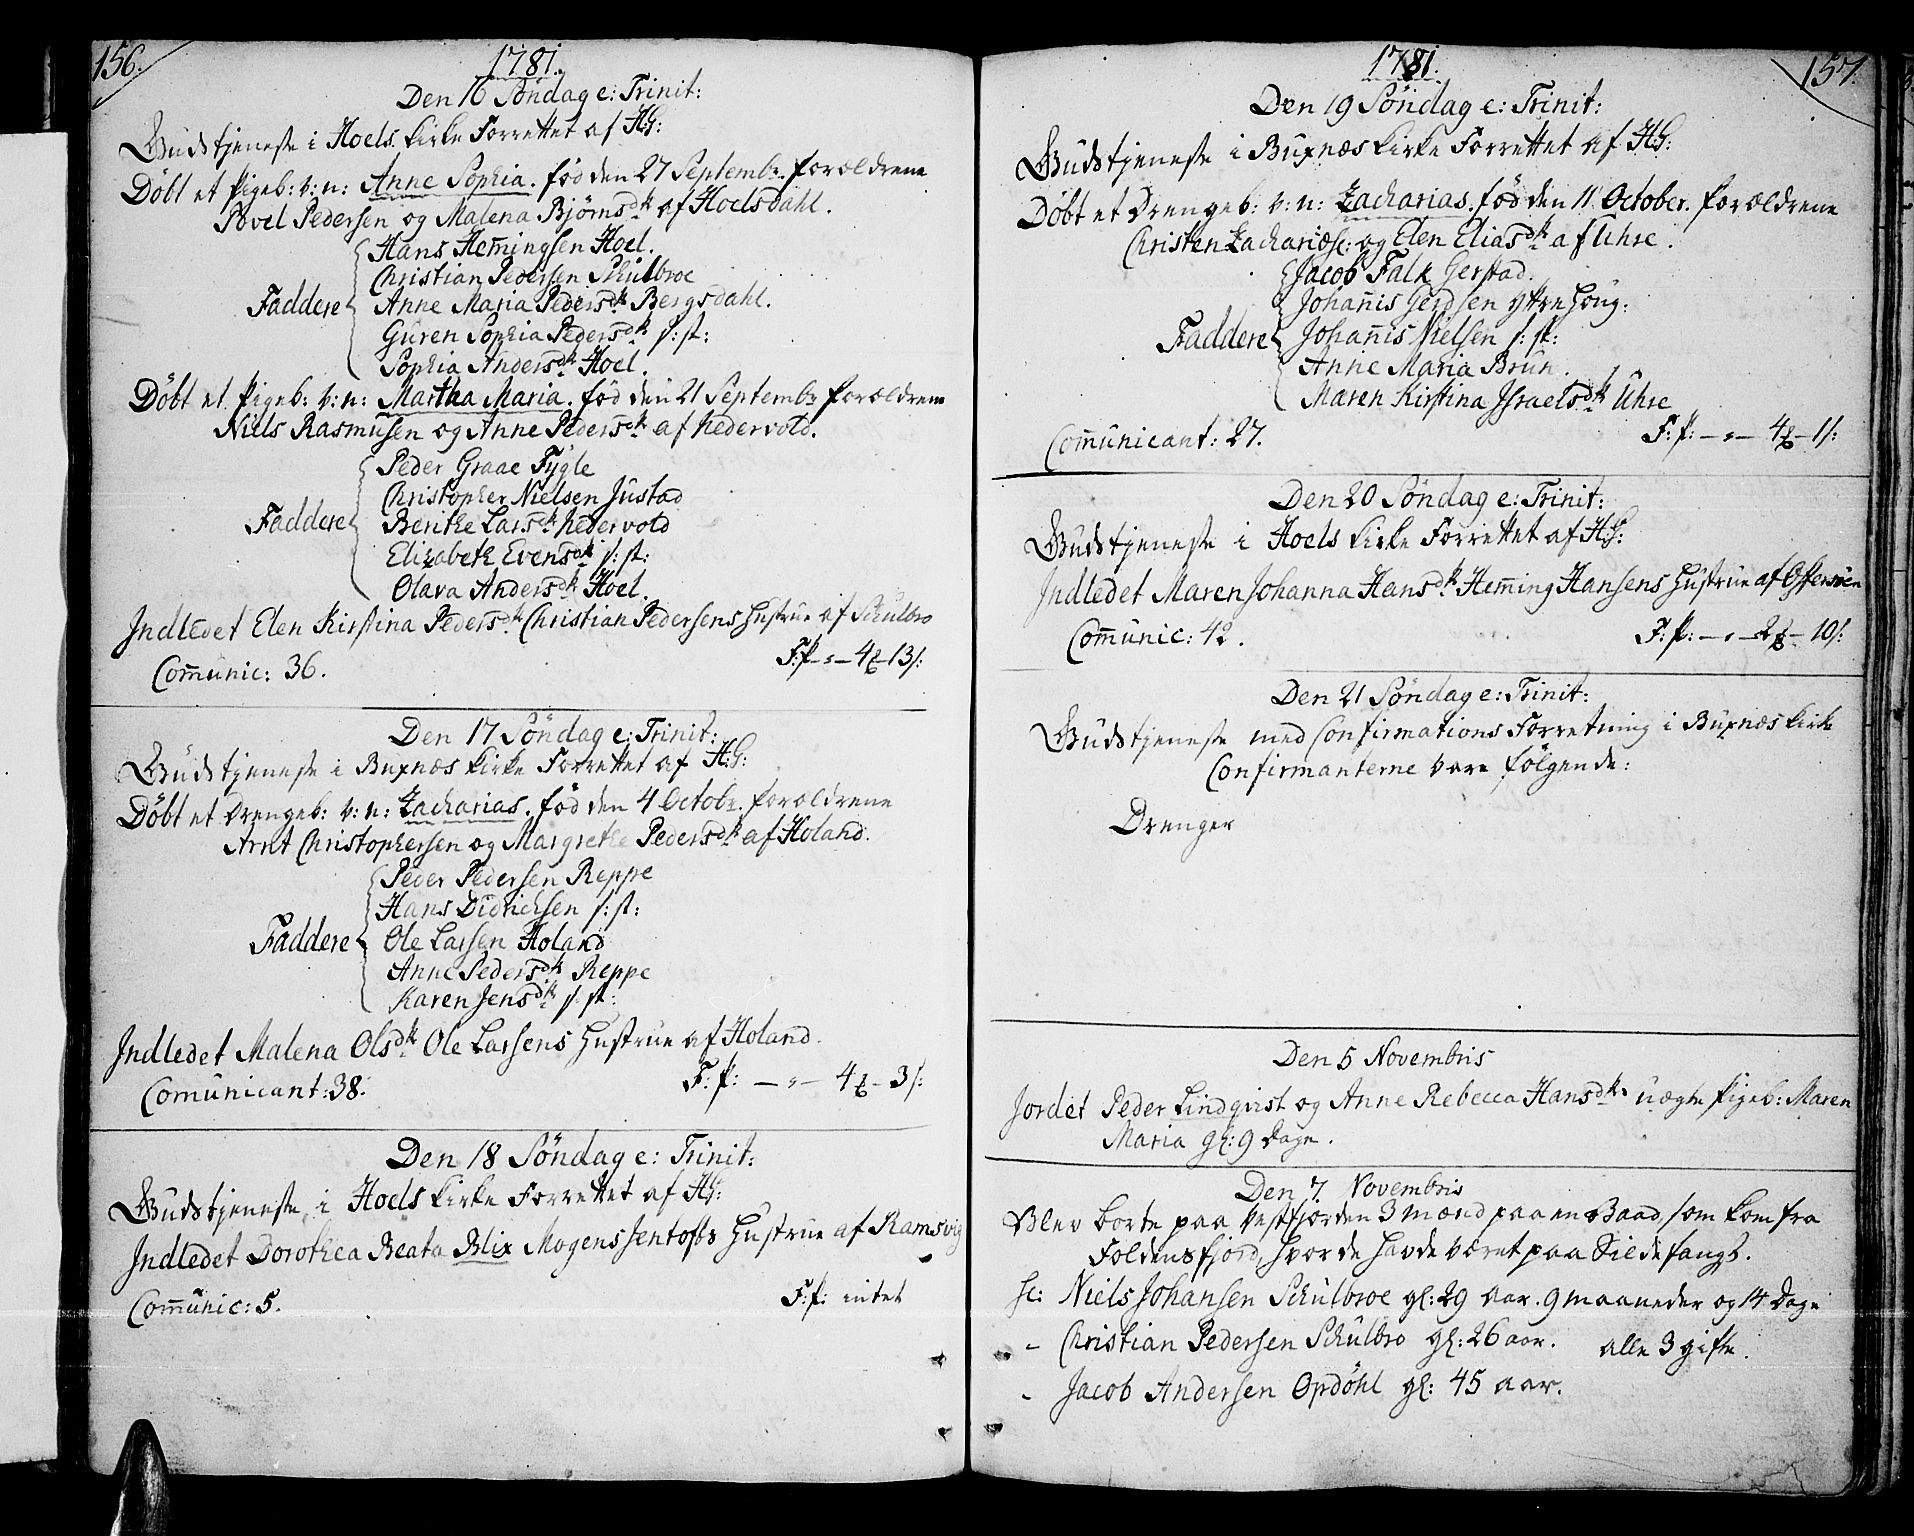 156.
1781.
Den 16 Söndag e: Trinit:
Gudstjeneste i Hoels kirke Forrettet af H:G:
Döbt et Pigeb: v: n: Anne Sophia. fød den 27 Septembr. forældrene
Povel Pedersen og Malena Bjørnsdtr af Hoelsdahl.
Hans Hemingsen Hoel.
Christian Pedersen Schulbroe
Faddere Anne Maria Pedersdtr Bergsdahl.
Guren Sophia Pedersdtr s: st:
Sophia Andersdtr Hoel.
Döbt et Pigeb: v: n: Martha Maria. fød den 21 Septembr forældrene
Niels Rasmusen og Anne Pedersdtr af Nedervold.
Peder Graae Fygle
Christopher Nielsen Justad
Faddere Berithe Larsdtr Nedervold
Elizabeth Evensdtr s: st:
Olava Andersdtr Hoel.
Indledet Elen Kirstina Pedersdtr Christian Pedersens Hustrue af Schulbro
Comunic: 36.
F: p - " - 4 - 13 s:
Den 17 Söndag e: Trinit:
Gudstjeneste i Buxnæs kirke Forrettet af H:G:
Döbt et Drengeb: v: n: Zacharias. fød den 4 Octobr. forældrene
Arnt Christophersen og Margrethe Pedersdtr af Holand.
Peder Pedersen Reppe
Hans Didrichsen s: st:
Faddere Ole Larsen Holand
Anne Pedersdtr Reppe
Karen Jensdtr s: st:
Indledet Malena Olsdtr Ole Larsens Hustrue af Holand.
Comunicant: 38.
F: p: - " - 4 - 3 s:
Den 18 Söndag e: Trinit:
Gudstjeneste i Hoels kirke Forrettet af H:G:
Indledet Dorothea Beata Blix Mogens Jentofts Hustrue af Ramsvig
Comunic: 5.
F: p: intet
1781.
157.
Den 19 Söndag e: Trinit:
Gudstjeneste i Buxnæs kirke Forrettet af H:G:
Döbt et Drengeb: v: n: Zacharias. fød den 11 October. forældrene
Christen Zachariæs: og Elen Eliasdtr af Uhre.
Jacob Falk Gerstad.
Johannis Gerdsen yttre Houg:
Faddere Johannis Nielsen s: st:
Anne Maria Brun.
Maren Kirstina Israelsdtr Uhre
Comunicant: 27.
F: p: - " - 4 - 1 s:
Den 20 Söndag e: Trinit:
Gudstjeneste i Hoels kirke Forrettet af H:G:
Indledet Maren Johanna Hansdtr Heming Hansens Hustrue af Offersöen
Comunic: 42.
F: p: - " - 2 - 10 s:
Den 21 Söndag e: Trinit:
Gudstjeneste med Confirmations Forretning i Buxnæs kirke
Confirmanterne vare følgende:
Drenger
Den 5 Novembris
Jordet Peder Lindqvist og Anne Rebecca Hansdtrs uægte Pigeb: Maren
Maria gl: 9 Dage.
Den 7 Novembris
Blev borte paa Vestfjorden 3 mænd paa en Baad, som kom fra
Foldensfjord, hvor de havde været paa Sildefangst.
sc: Niels Johansen Schulbroe gl: 29 aar. 9 maaneder og 14 Dage
- Christian Pedersen Schulbro gl: 26 aar. alle 3 gifte.
- Jacob Andersen Opdöhl gl: 45 aar.